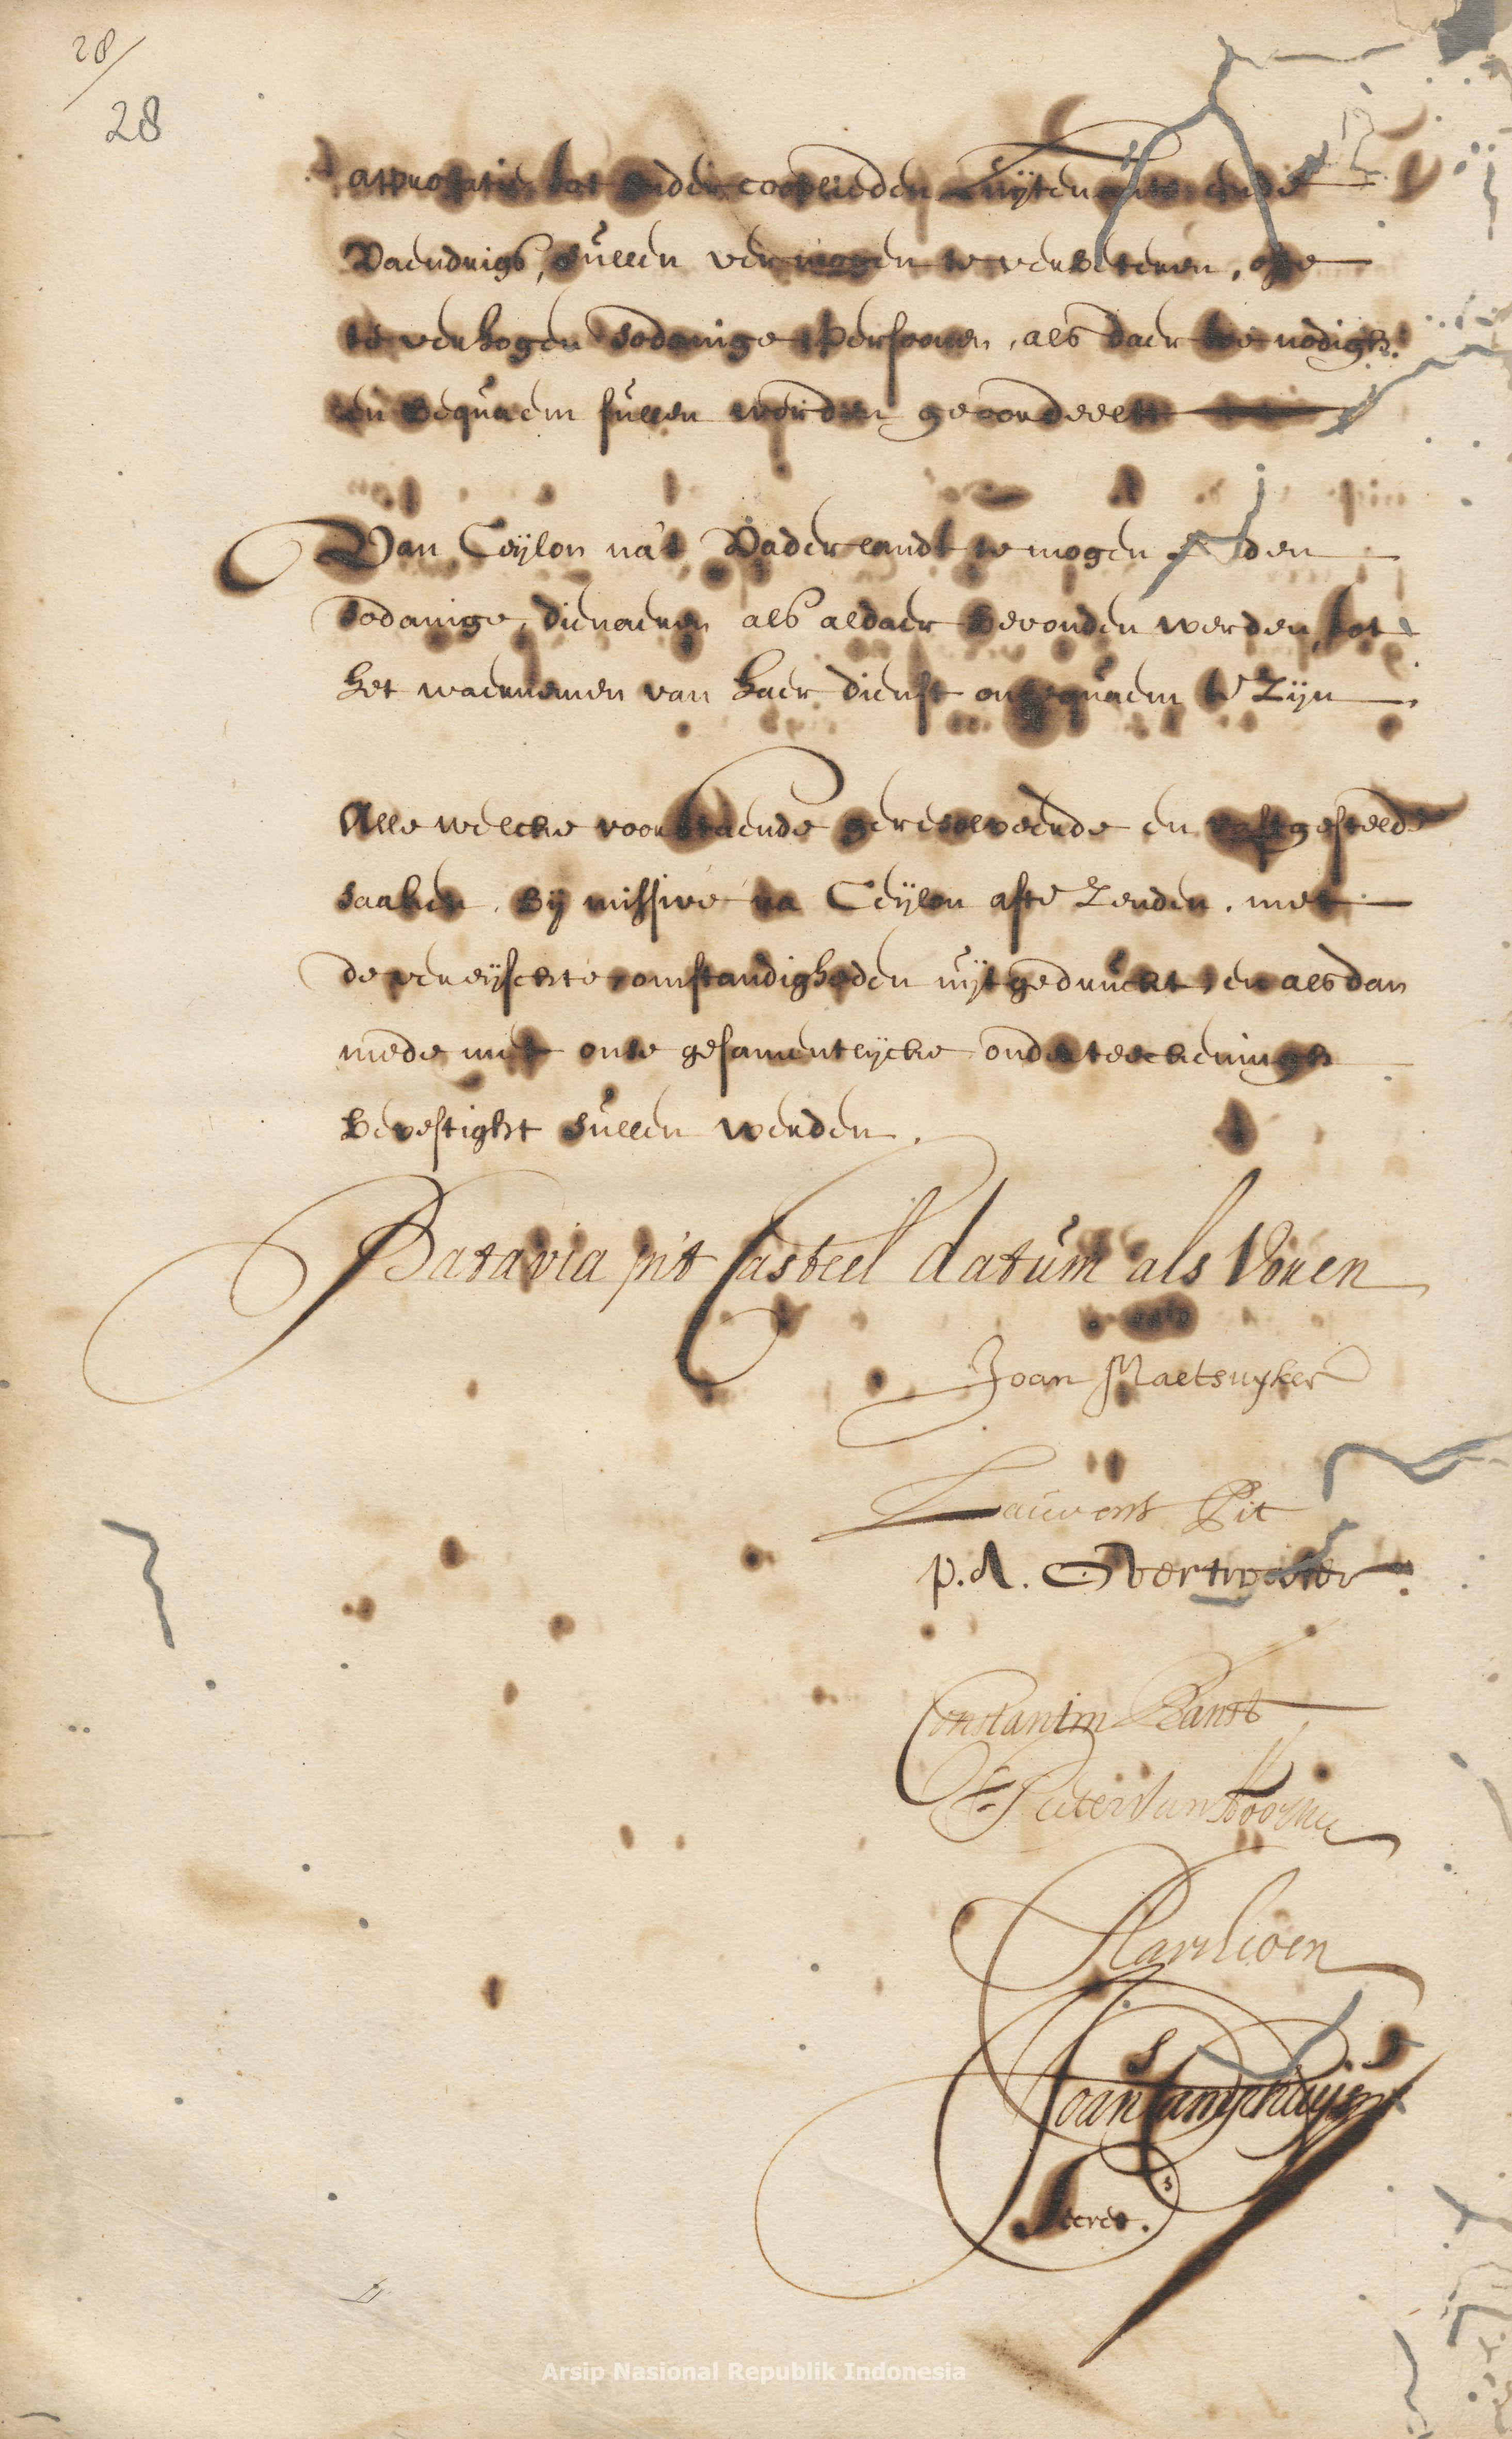 28
28
approbatie, tot onder cooplieden Luijtenants ende
Vaendrigs, sullen vermogen te verbeteren, ofte
te verhogen sodanige persoonen, als daer toe nodigh
en bequaem sullen worden geoordeelt
Van Ceijlon na't Vaderlandt te mogen senden
sodanige dienaeren als aldaer bevonden werden, tot
het waernemen van haer dienst onbequaem te zijn
Alle welcke voorstaende geresolveerde en vastgestelde
saaken, bij missive na Ceijlon afte zenden, met
de vereijschte omstandigheden uijtgedruckt, en alsdan
mede met onse gesamentlijcke onderteeckeningh
bevestight sullen werden.
Batavia in't Casteel datum als Voren
Joan Maetsuyker
Laurens Pit
p. A. Overtwater
Constantin Ranst
Pieter van Hoorn
Harthoen
Joan Camphuijs
Secret.s
Arsip Nasional Republik Indonesia